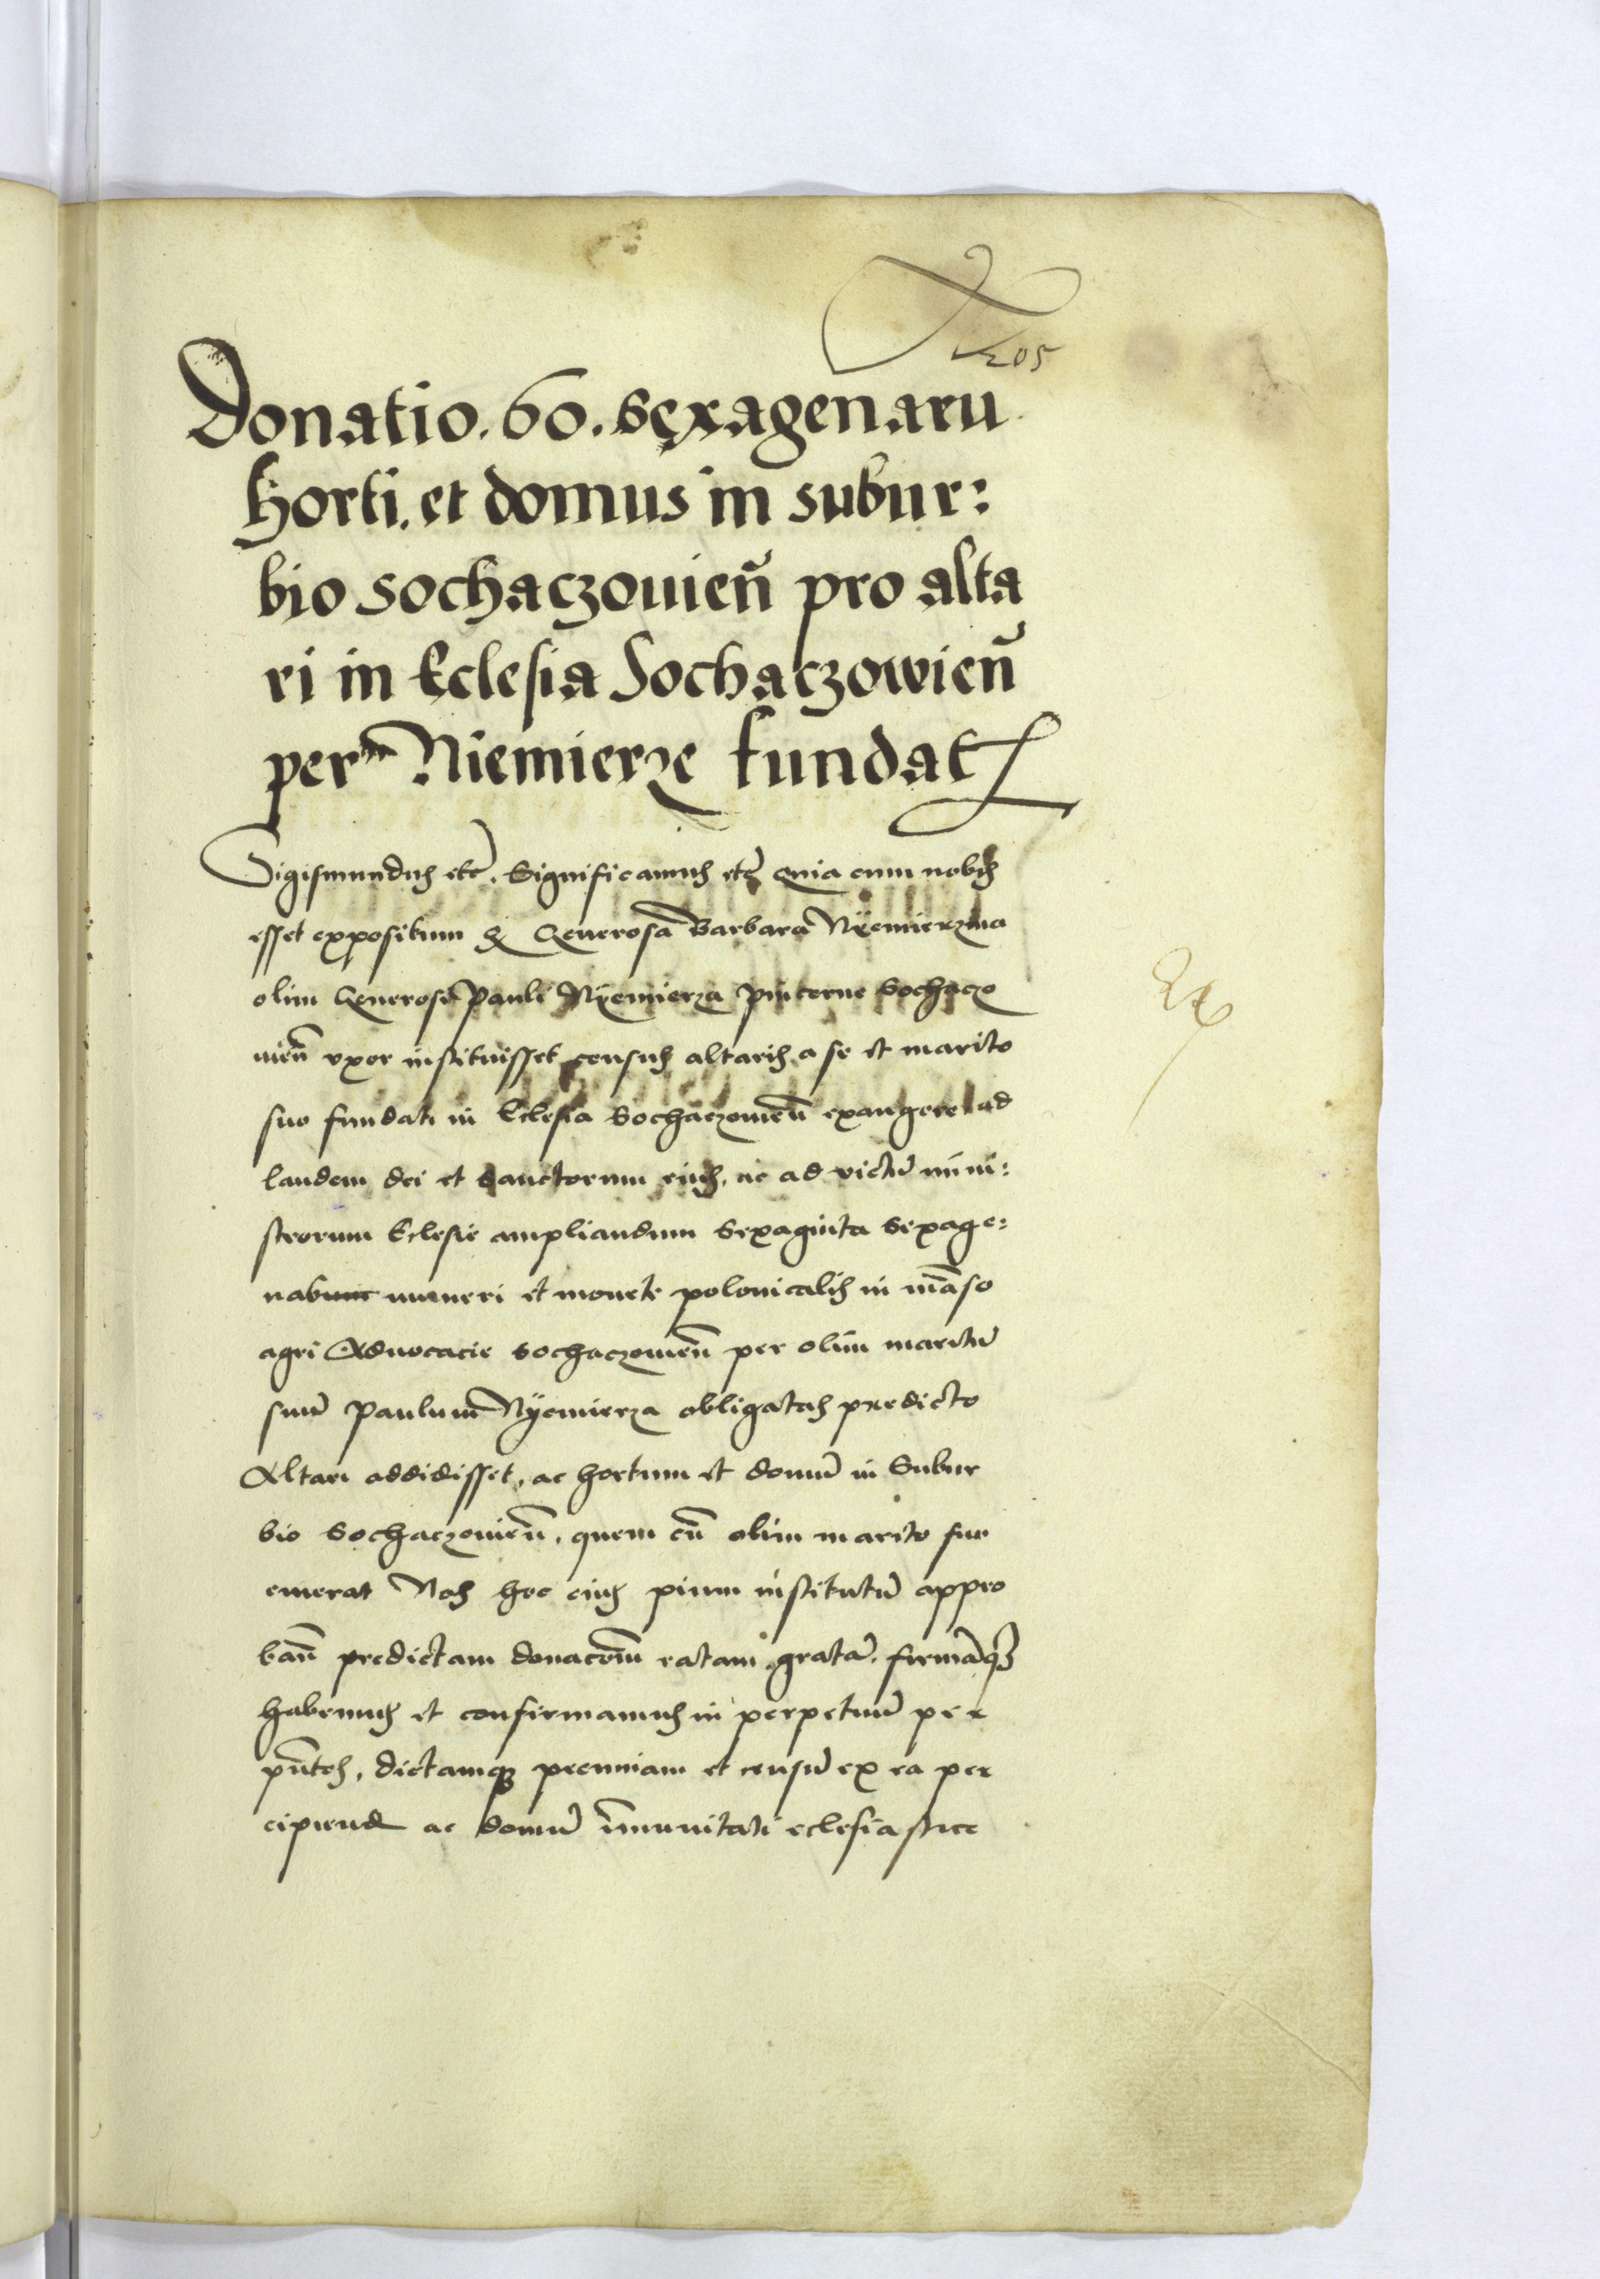 205
Donatio. 60. sexagenaru
horti. et domus in subur:
bio sochaczouien̄ pro alta
ri in Eclesia Sochaczowien̄
per Niemierze fundat
Sigismundus etc. Significamus etc quia cum nobis
esset expositum q Generosa Barbara Nÿemierzina
olim Generosi Pauli Nÿemierza pincerne Sochaczo
uien̄ vxor instituisset census altaris a se et marito
suo fundati in Eclesia Sochaczouien̄ exaugere ad
laudem dei et sanctorum eius, ac ad victū mini:
strorum Eclesie ampliandum Sexaginta Sexage:
nas numeri et monete polonicalis in manso
agri Aduocacie Sochaczouien̄ per olim maritū
suū Paulum Nÿemierza obligatas predicto
Altari addidisset, ac hortum et domū in Subur
bio Sochaczouien̄, quem cū olim marito suo
emerat Nos hoc eius pium institutū appro
ban̄ predictam donacōm ratam gratā. firmāqꝫ
habemus et confirmamus in perpetuū per
pn̄tes, dictamqꝫ pecuniam et censū ex ea per
cipiend ac domū īmunitati eclesiastice